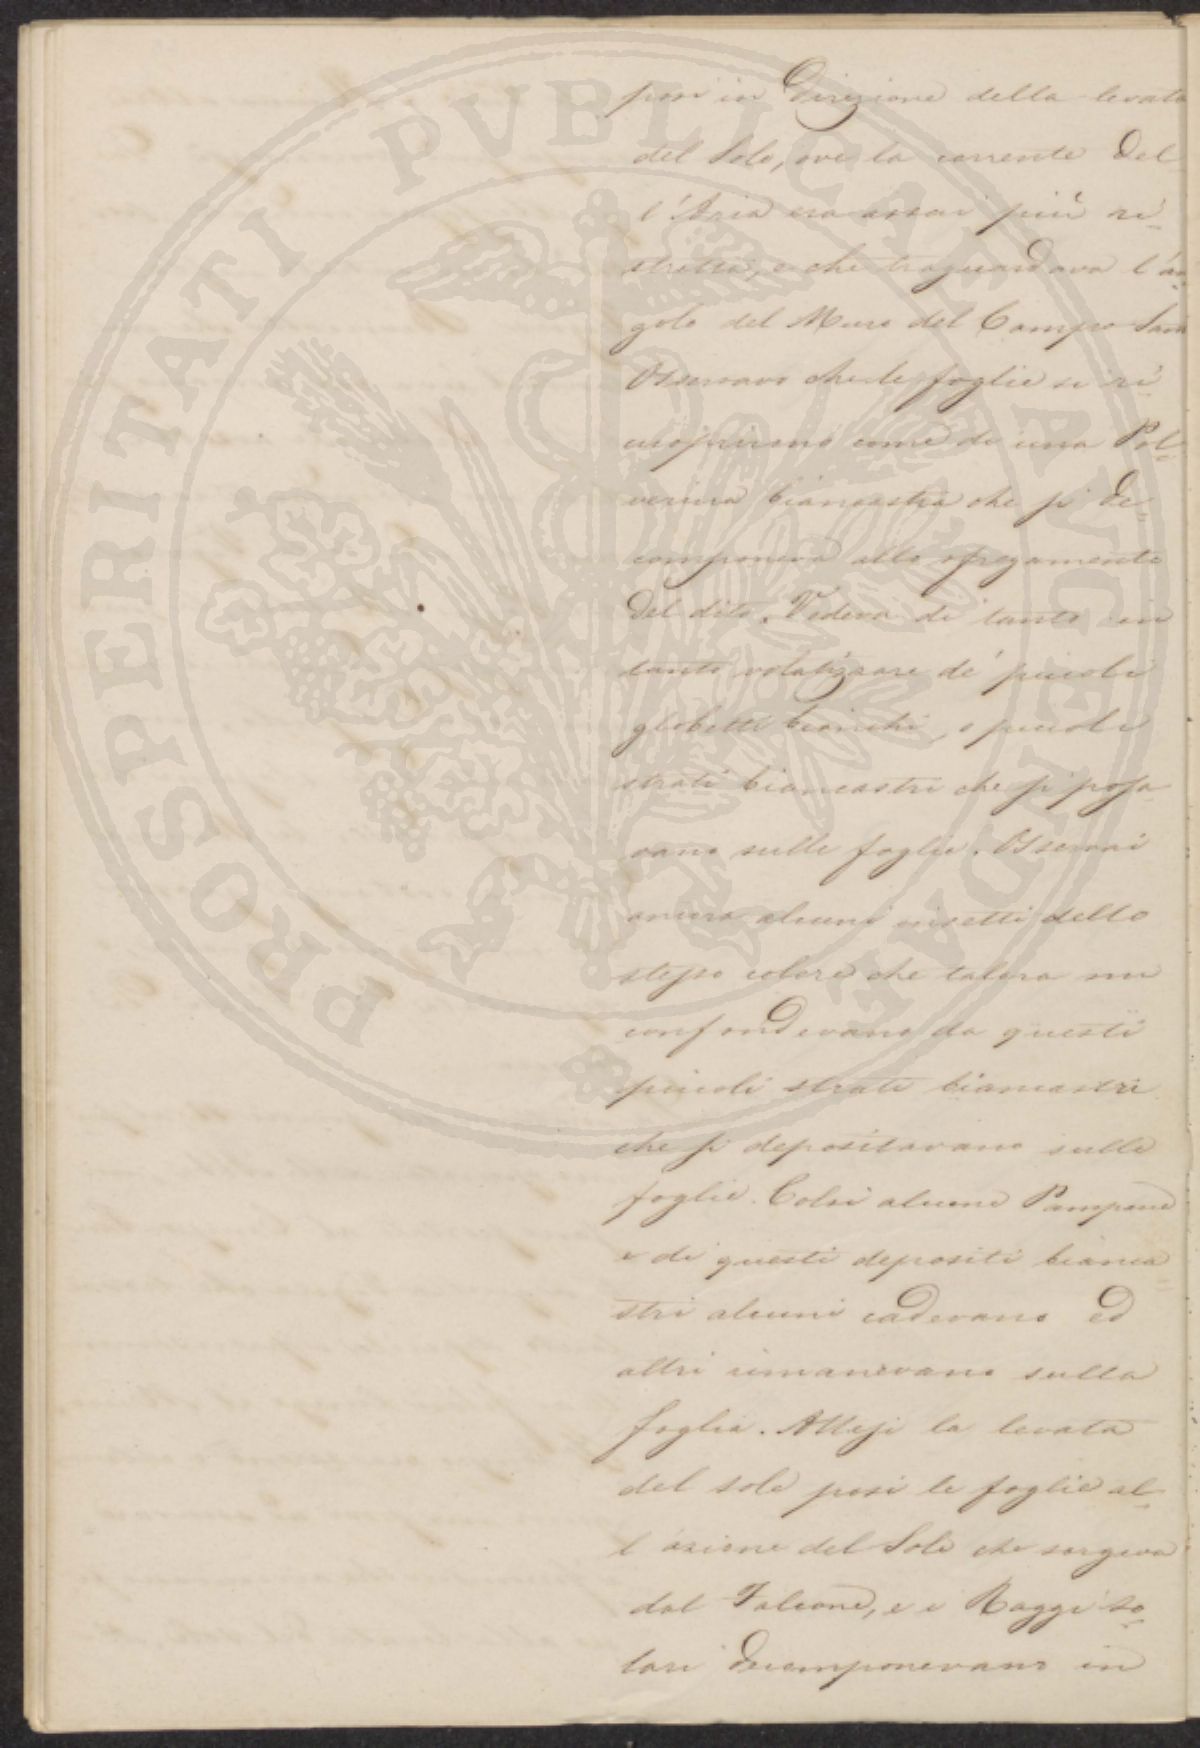 PROSPERITATI PVBLICAE AVGENDAE
posi in Direzione della levata
del Sole, ove la corrente del
l'Aria era assai più ri
stretta, e che traguardava l'an
golo del Muro del Campo San
Osservavo che le foglie si ri
cuoprivano come di una Pol
verina biancastra che si de
componeva allo sfregamento
del dito. Vedeva di tanto in
tanto volatizzare de' piccoli
globetti bianchi, o piccoli
strati biancastri che si posa
vano sulle foglie. Osservai
ancora alcuni insetti dello
stesso colore che talora mi
confondevano da questi
piccoli strati biancastri
che si depositavano sulle
foglie. Colsi alcune Pampane
e di questi depositi bianca
stri alcuni cadevano ed
altri rimanevano sulla
foglia. Attesi la levata
del sole posi le foglie al
l'azione del Sole che sorgeva
dal Falcone, e i Raggi so
lari decomponevano in